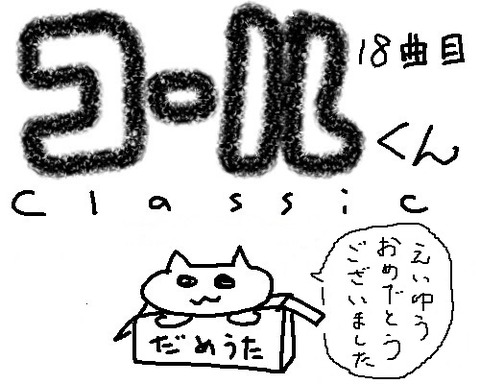 コール
18曲目
くん
Classic
えいゆう
おめだとう
ございました
だめうた